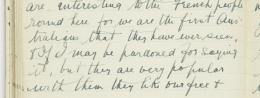 are interesting to the French people
round here for we are the first Aus-
tralians that they have ever seen,
& if I may be pardoned for saying
it, but they are very popular
with them they like our free &